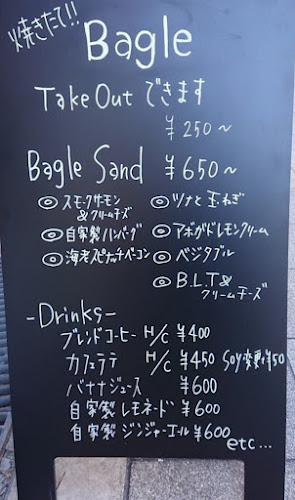 焼きたて!!
Bagle
Take Out できます
¥250～
Bagle Sand ¥650～
◎スモークサーモン&クリームチーズ
◎ツナと玉ねぎ
◎自家製ハンバーグ
◎アボガドレモンクリーム
◎海老スピナッチベーコン
◎ベジタブル
◎B.L.T&クリームチーズ
-Drinks-
ブレンドコーヒー H/C ¥400
カフェラテ H/C ¥450 Soy変更+¥50
バナナジュース ¥600
自家製 レモネード ¥600
自家製 ジンジャーエール ¥600
etc...